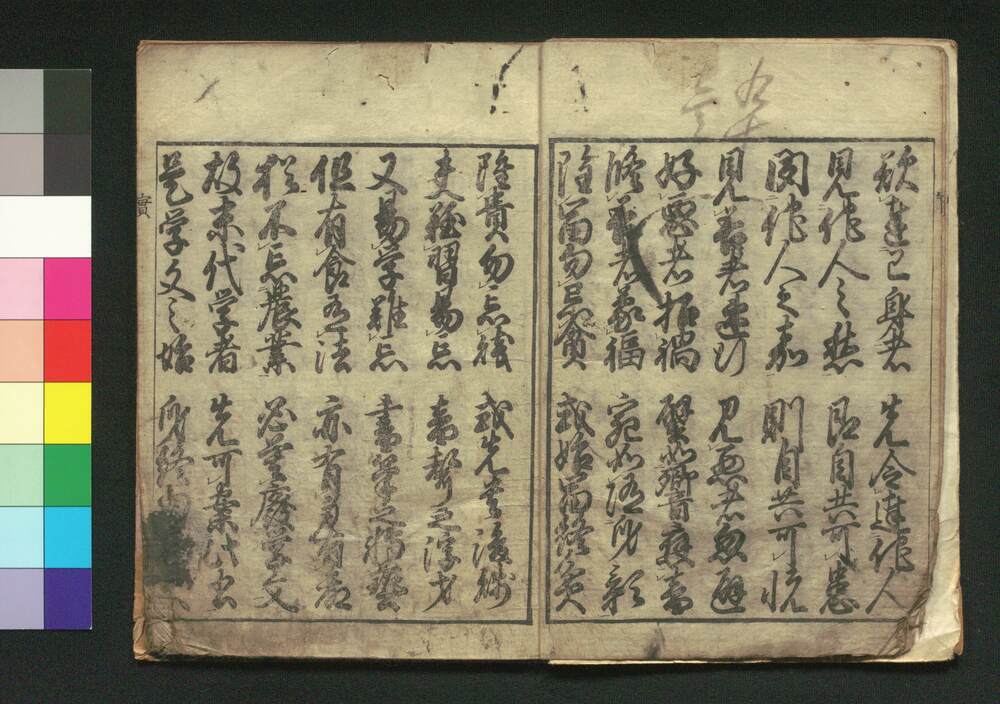 欲達己身者 先令達他人
見他人之愁 即自共可患
聞他人之嘉 則自共可悦
見善者速行 見悪者忽避
好悪者招禍 譬如響應音
修善者蒙福 宛如随身影
雖冨勿忘貧 或始冨終貧
雖貴勿忘賤 或先貴後賤
夫難習易忘 音聲之浮才
又易学難忘 書筆之博藝
但有食有法 亦有身有命
猶不忘農業 必莫廃学文
故末代学者 先可案此書
是学文之始 身終
實